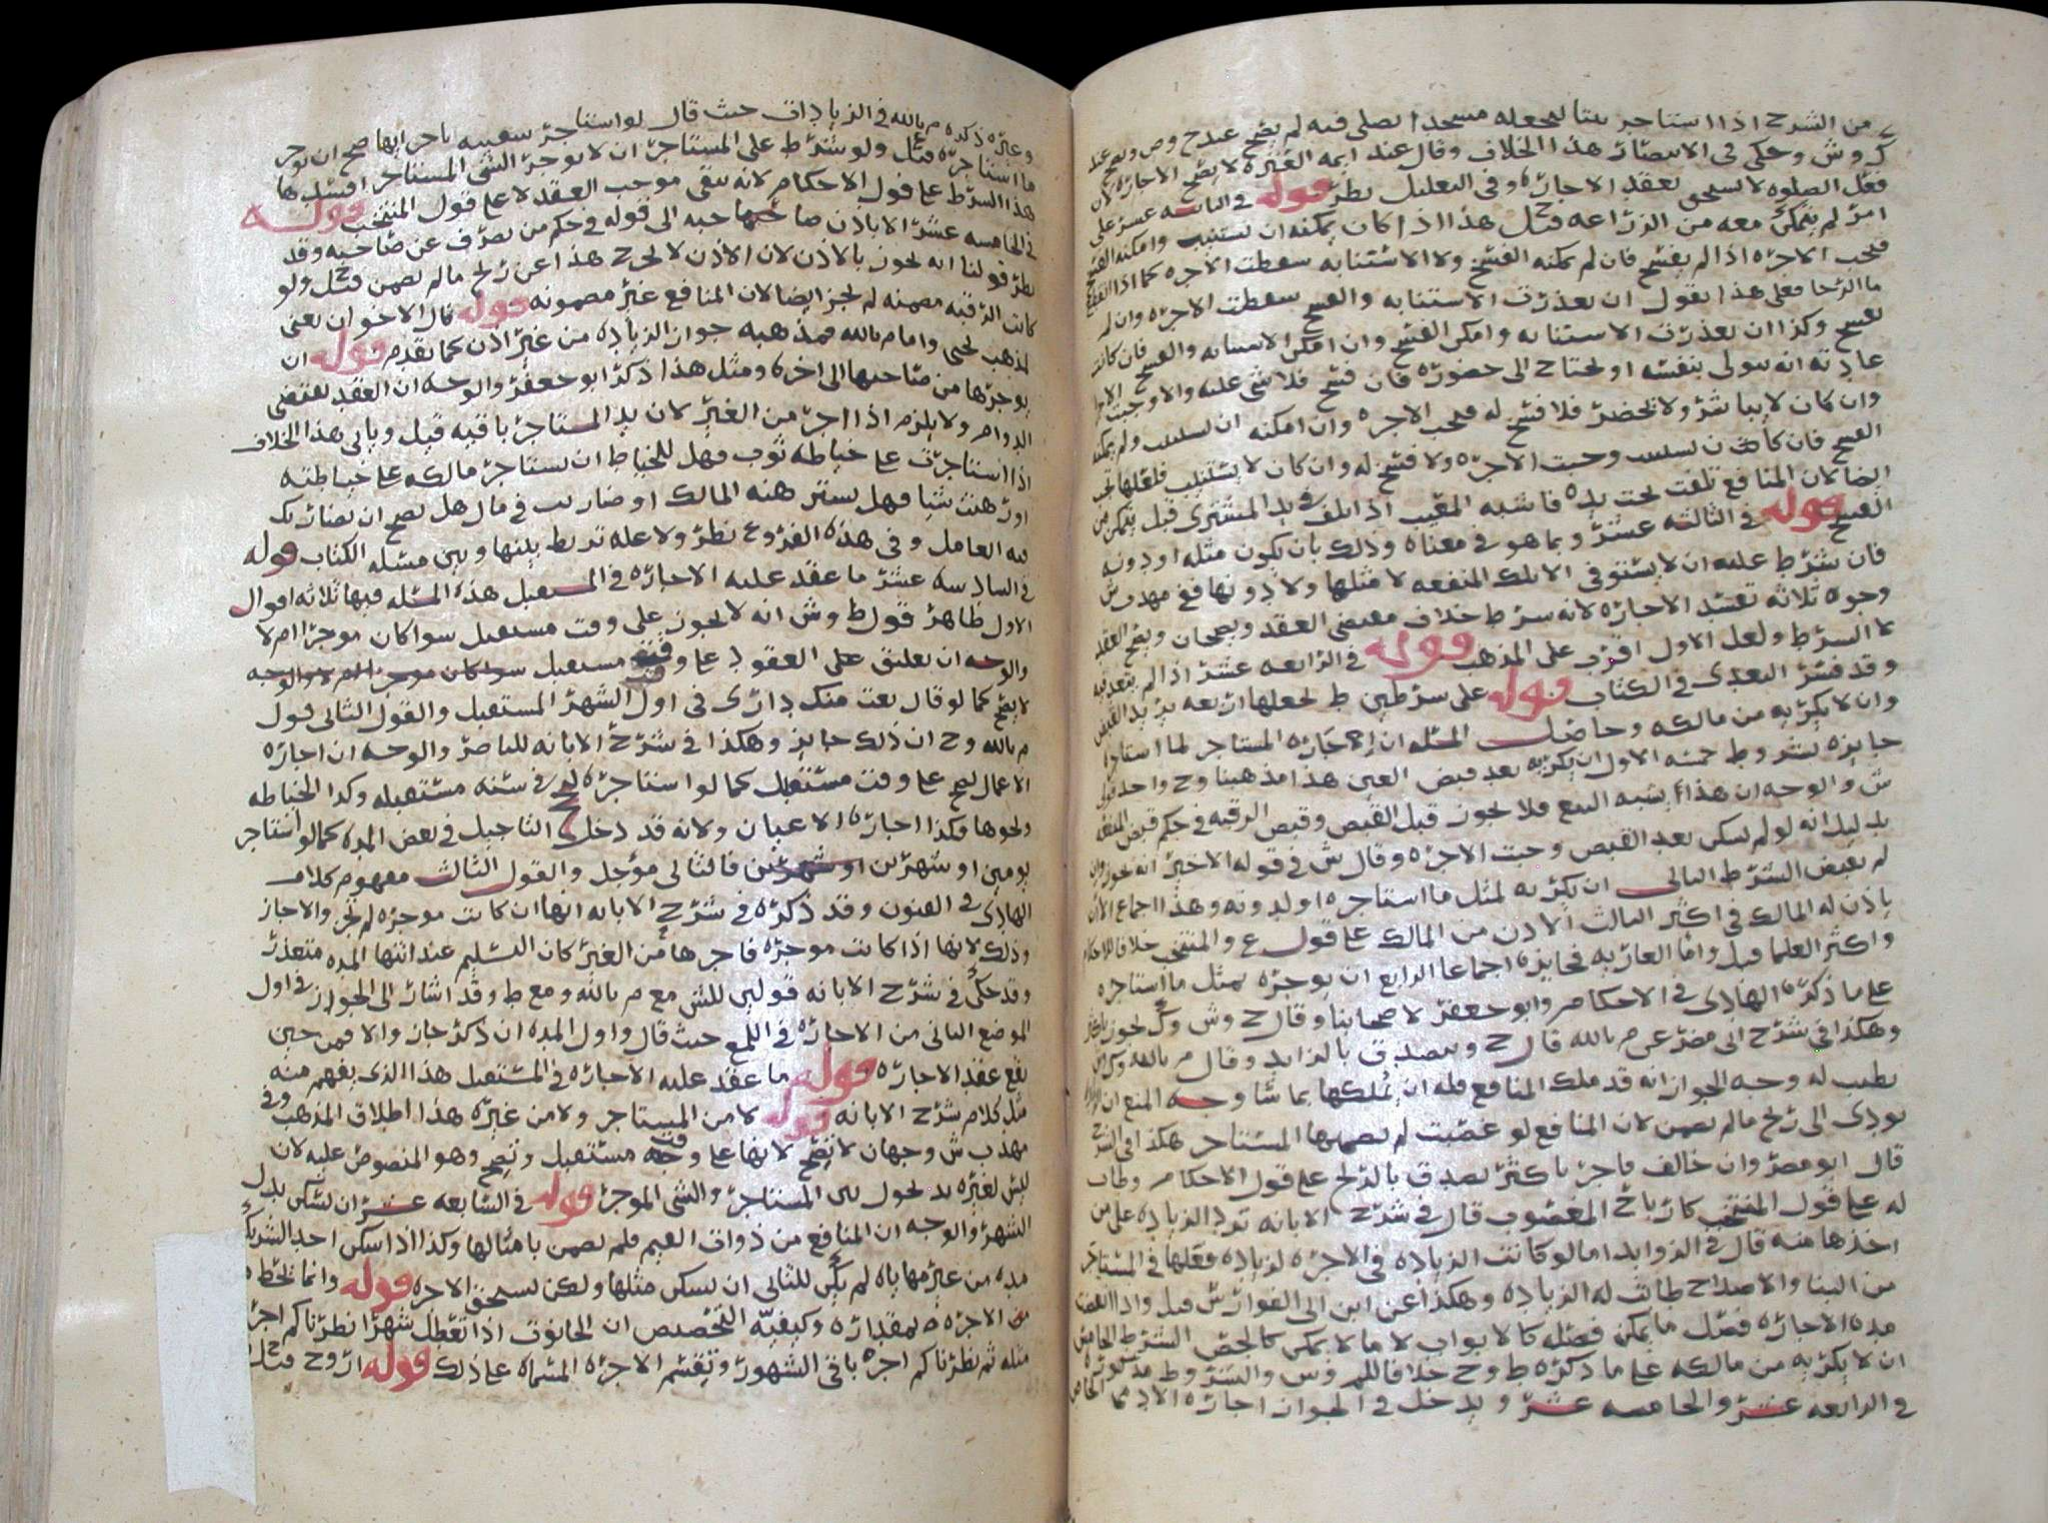 من الشرح اذا استاجر بيتا ليجعله مسجدا يصلى فيه لم يصح عند ح وص ويصح عند
ك وش وحكى فى الانتصار هذا الخلاف وقال عند ايمه العتره لا يصح الاجاره لان
فعل الصلوه لا يستحق بعقد الاجاره وفى التعليل نظر قوله فى الثانيه عشر على
امر لم يتمكن معه من الزراعه قيل ح هذا اذا كان يمكنه ان يستنيب وامكنه الفسخ
فيجب الاجره اذا لم يفسخ فان لم يمكنه الفسخ ولا الاستنابه سقطت الاجره كما اذا انقطع
ما الرحا فعلى هذا يقول ان تعذرت الاستنابه والفسخ سقطت الاجره وان لم
يفسخ وكذا ان تعذرت الاستنابه وامكن الفسخ وان امكن الاستنابه والفسخ فان كانت
عادته انه يتولى بنفسه او يحتاج الى حضوره فان فسخ فلا شى عليه والا وجبت الاجره
وان كان لا يباشر ولا يحضر فلا فسخ له فيجب الاجره وان امكنه ان يستنيب ولم يمكنه
الفسخ فان كان يستنيب وجبت الاجره ولا فسخ له وان كان لا يستنيب فلعلها تجب
ايضا لان المنافع تلفت تحت يده فاشبه المعيب اذا تلف فى يد المشترى قبل يتمكن من
الفسخ قوله فى الثالثه عشر وبما هو فى معناه وذلك بان يكون مثله او دونه
فان شرط عليه ان لا يستوفى الا تلك المنفعه لا مثلها ولا دونها ففى مهذب ش
وجوه ثلاثه تفسد الاجاره لانه شرط خلاف مقتضى العقد ويصحان ويصح العقد
لا الشرط ولعل الاول اقرب على المذهب قوله فى الرابعه عشر اذا لم يتعد فيه
وقد فسر التعدى فى الكتاب قوله على شرطين ط يجعلها اربعه يزيد القبض
وان لا يكريه من مالكه وحاصل المسئله ان اجاره المستاجر لما استاجر
جايزه بشروط خمسه الاول ان يكريه بعد قبض العين هذا مذهبنا وح واحد قولى
ش والوجه ان هذا يشبه البيع فلا يجوز قبل القبض وقبض الرقبه فى حكم قبض المنفعه
بدليل انه لو لم يسكن بعد القبض وجبت الاجره وقال ش فى قوله الاخير انه يجوز وان
لم يقبض الشرط الثانى ان يكريه لمثل ما استاجره او لدونه وهذا اجماع الا ان
ياذن له المالك فى اكثر الثالث الاذن من المالك على قول ع والمنتخب خلافا للاحكام
واكثر العلما قيل واما العاريه فجايزه اجماعا الرابع ان يوجره بمثل ما استاجره
على ما ذكره الهادى فى الاحكام وابو جعفر لاصحابنا وقال ح وش وك يجوز باكثر
وهكذا فى شرح ابى مضر عن م بالله قال ح ويتصدق بالزايد وقال م بالله وك ش
يطيب له وجه الجواز انه قد ملك المنافع فله ان يملكها بما شا وجه المنع ان
يودى الى ربح ما لم يضمن لان المنافع لو غصبت لم يضمنها المستاجر هكذا فى الشرح
قال ابو مضر وان خالف فاجر باكثر تصدق بالربح على قول الاحكام وطاب
له على قول المنتخب كارباح المغصوب قال فى شرح الابانه ترد الزياده على من
اخذها منه قال فى الزوايد اما لو كانت الزياده فى الاجره لزياده فعلها فى المستاجر
من البنا والاصلاح طابت له الزياده وهكذا عن ابن ابى الفوارس قيل واذا انقضت
مده الاجاره فصل ما يمكن فصله كالابواب لا ما لا يمكن كالجص الشرط الخامس
ان لا يكريه من مالكه على ما ذكره ط وح خلافا للم وش والشروط مذكوره
فى الرابعه عشر والخامسه عشر ويدخل فى الجواز اجاره الادمى الخاص
وغيره ذكره م بالله فى الزيادات حيث قال لو استاجر سفينه باجر ايها صح ان يوجر
ما استاجره قيل ع ولو شرط على المستاجر ان لا يوجر الشى المستاجر افسدها
هذا الشرط على قول الاحكام لانه ينفى موجب العقد لا على قول المنتخب قوله
فى الخامسه عشر الا باذن صاحبه الى قوله فى حكم من تصرف عن صاحبه وقد
نظر قولنا انه يجوز بالاذن لان الاذن لا يخرج هذا عن ربح ما لم يضمن قيل ح ولو
كانت الرقبه مضمنه لم يجز ايضا لان المنافع غير مضمونه قوله قال الاخوان يعنى
لمذهب يحيى واما م بالله فمذهبه جواز الزياده من غير اذن كما تقدم قوله ان
يوجرها من صاحبها الى اخره ومثل هذا ذكر ابو جعفر والوجه ان العقد يقتضى
الدوام ولا يلزم اذا اجر من الغير لان يد المستاجر باقيه قيل وياتى هذا الخلاف
اذا استاجرت على خياطه ثوب فهل للخياط ان يستاجر مالكه على خياطته
او رهنت شيا فهل يسترهنه المالك او ضاربت فى مال هل يصح ان يضاربك
فيه العامل وفى هذه الفروع نظر ولا عله تربط بينها وبين مسئله الكتاب قوله
فى السادسه عشر ما عقد عليه الاجاره فى المستقبل هذه المسئله فيها ثلاثه اقوال
الاول ظاهر قول ط وش انه لا يجوز على وقت مستقبل سوا كان موجرا ام لا
والوجه ان تعليق على العقود على وقت مستقبل سوا كان موجرا ام لا والوجه
لا يصح كما لو قال بعت منك دارى فى اول الشهر المستقبل والقول الثانى قول
م بالله وح ان ذلك جايز وهكذا فى شرح الابانه للناصر والوجه ان اجاره
الاعمال تصح على وقت مستقبل كما لو استاجره لحج فى سنه مستقبله وكذا الخياطه
ونحوها فكذا اجاره الاعيان ولانه قد دخل التاجيل فى بعض المده كما لو استاجر
يومين او شهرين او شهرين فالثانى مؤجل والقول الثالث مفهوم كلام
الهادى فى الفنون وقد ذكره فى شرح الابانه انها ان كانت موجره لم تجز والا جاز
وذلك لانها اذا كانت موجره فاجرها من الغير كان التسليم عند انتها المده متعذر
وقد حكى فى شرح الابانه قولين للش مع م بالله ومع ط وقد اشار الى الجواز فى اول
الموضع الثانى من الاجاره فى اللمع حيث قال واول المده ان ذكر جاز والا فمن حين
يقع عقد الاجاره قوله ما عقد عليه الاجاره فى المستقبل هذا الذى يفهم منه
مثل كلام شرح الابانه قوله لا من المستاجر ولا من غيره هذا اطلاق المذهب وفى
مهذب ش وجهان لا يصح لانها على وقت مستقبل وتصح وهو المنصوص عليه لان
ليس لغيره يد يحول بين المستاجر والشى الموجر قوله فى السابعه عشر ان يسكن بدل
الشهر والوجه ان المنافع من ذوات القيم فلم يضمن بامثالها وكذا اذا سكن احد الشريكين
مده من غير مهاياه لم يكن للثانى ان يسكن مثلها ولكن يستحق الاجره قوله وانما يحط
من الاجره بمقداره وكيفيه التخصيص ان الحانوت اذا تعطل شهرا نظرنا كم اجره
مثله ثم نظرنا كم اجره باقى الشهور وتقسم الاجره المسماه على ذلك قوله